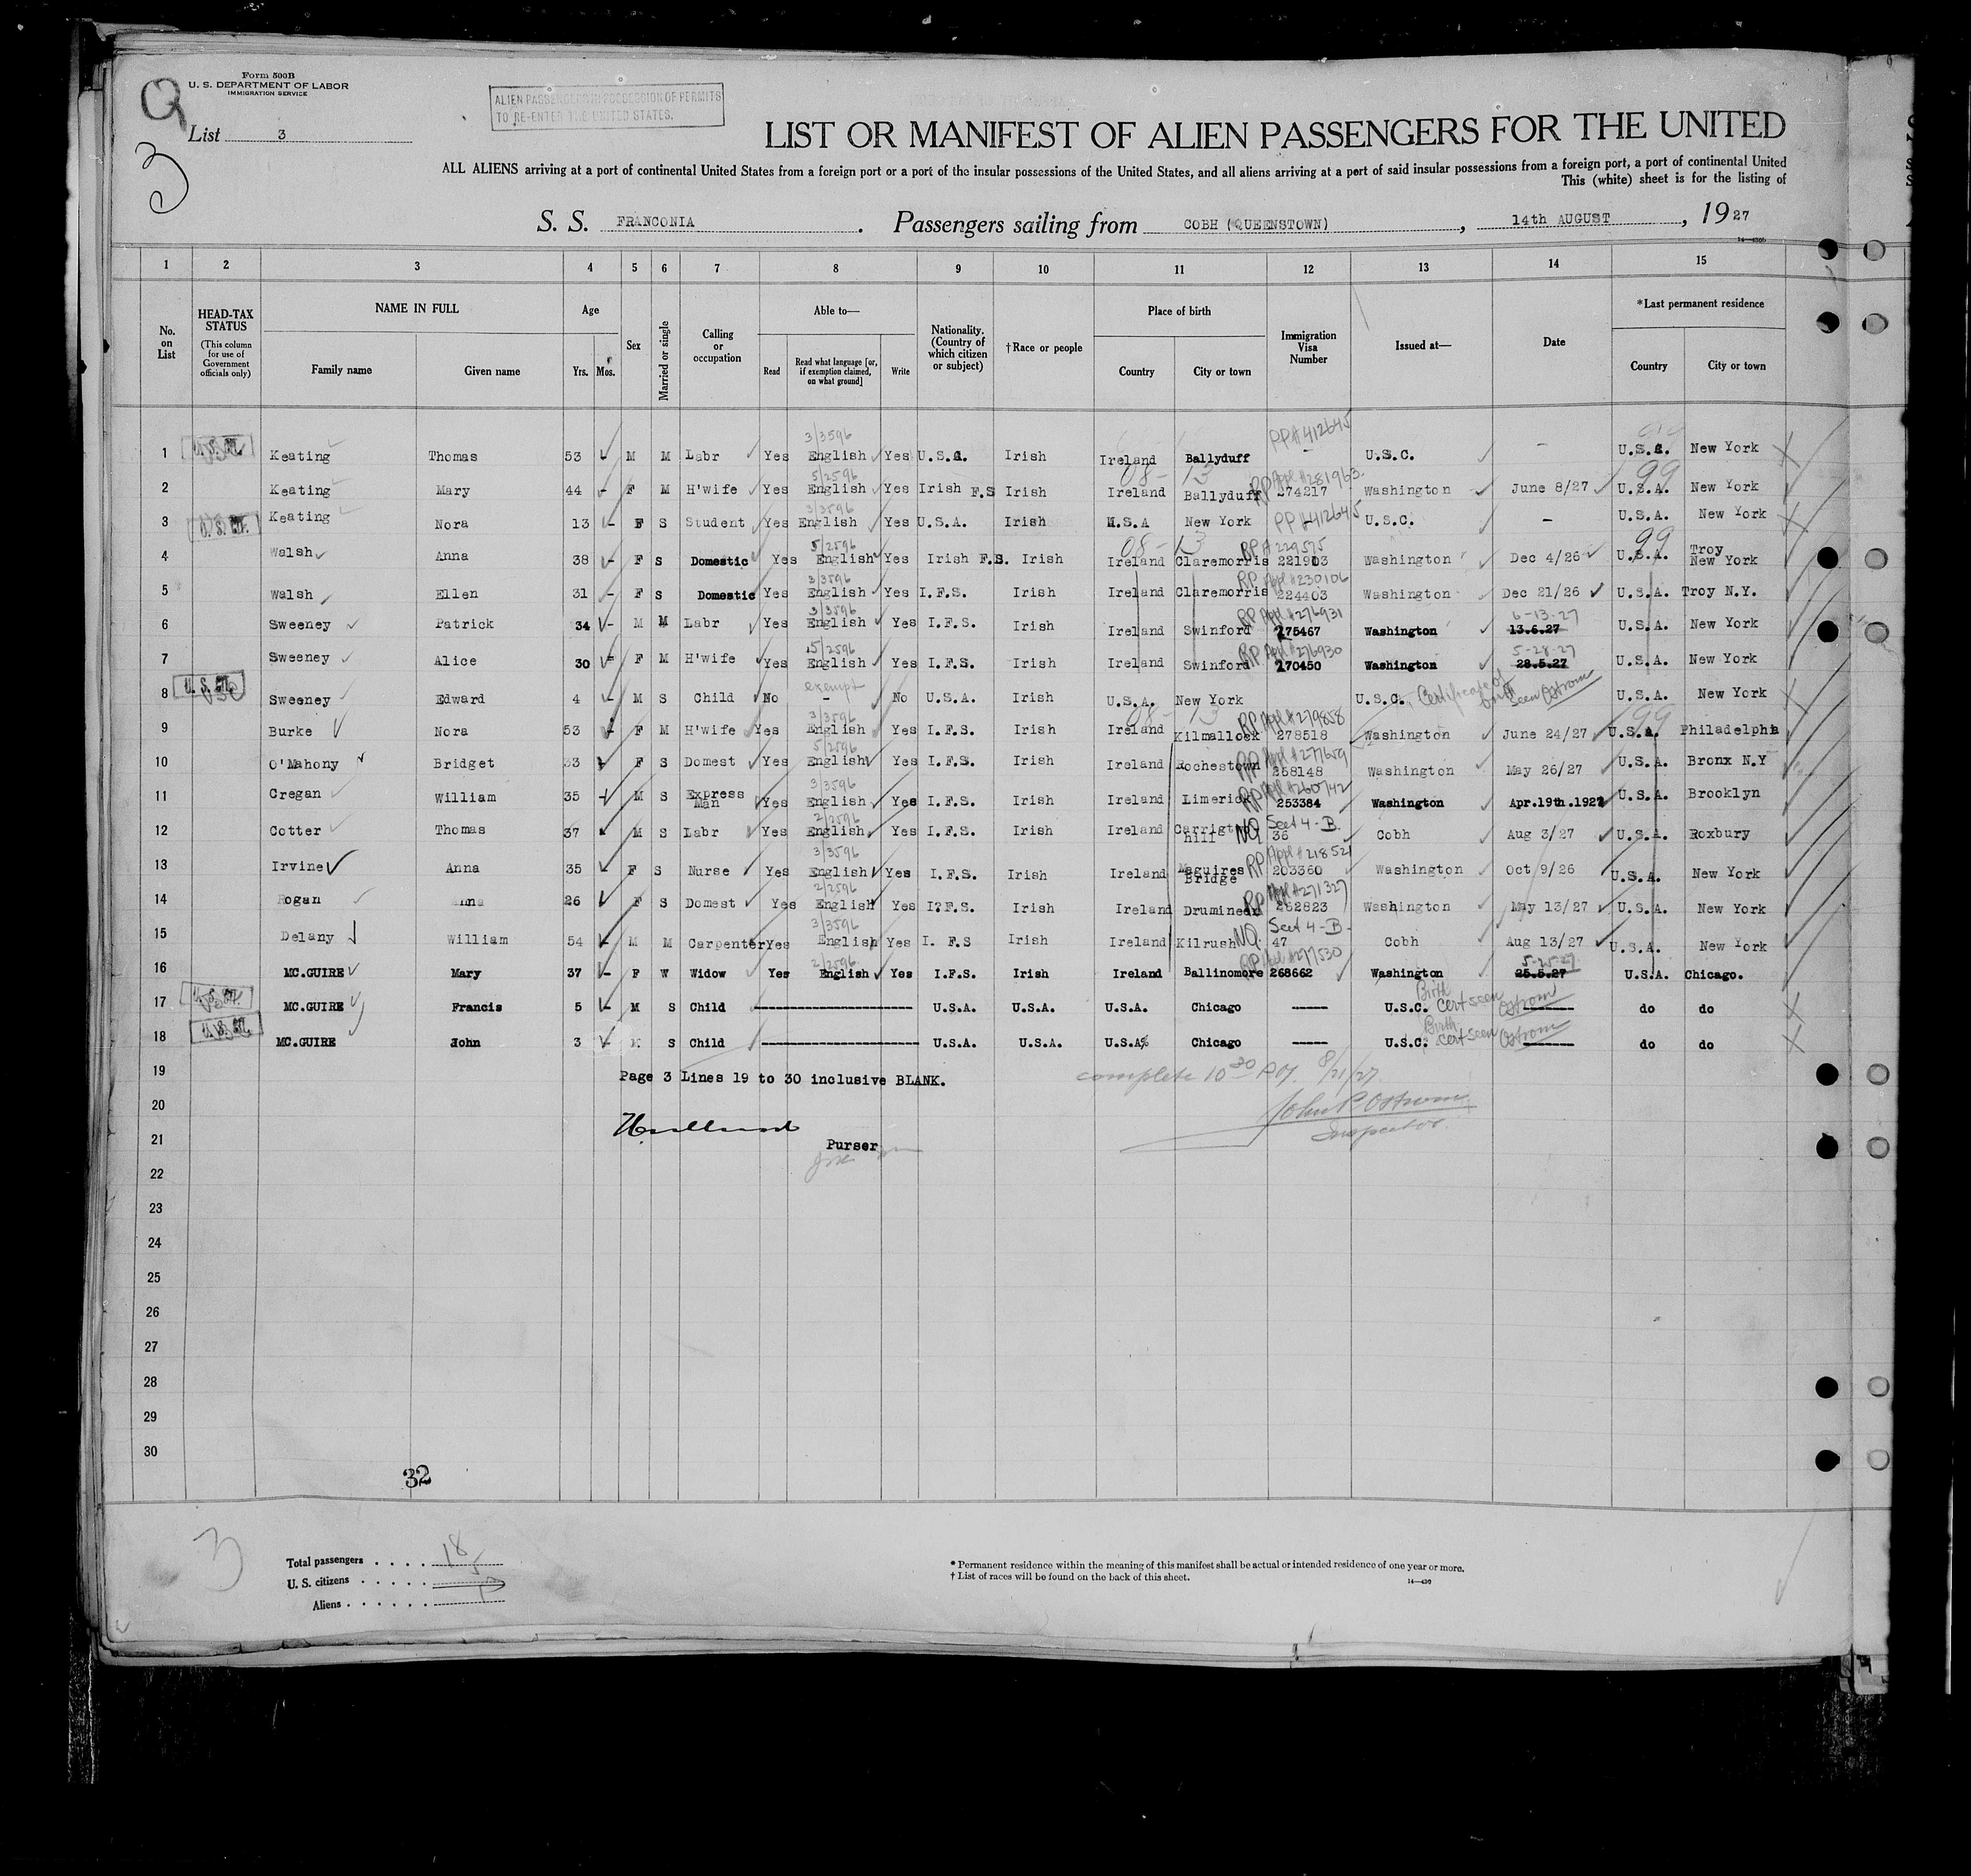 Form 500B
U. S. DEPARTMENT OF LABOR
IMMIGRATION SERVICE
ALIEN PASSENGERS IN POSSESSION OF PERMITS
TO RE-ENTER THE UNITED STATES.
List 3
3
LIST OR MANIFEST OF ALIEN PASSENGERS FOR THE UNITED
ALL ALIENS arriving at a port of continental United States from a foreign port or a port of the insular possessions of the United States, and all aliens arriving at a port of said insular possessions from a foreign port, a port of continental United
This (white) sheet is for the listing of
S. S. FRANCONIA. Passengers sailing from COBH (QUEENSTOWN), 14th AUGUST, 1927
1 2 3 4 5 6 7 8 9 10 11 12 13 14 15
No. on List
HEAD-TAX STATUS (This column for use of Government officials only)
NAME IN FULL Family name Given name
Age Yrs. Mos.
Sex
Married or single
Calling or occupation
Able to— Read Read what language [or, if exemption claimed, on what ground] Write
Nationality. (Country of which citizen or subject)
†Race or people
Place of birth Country City or town
Immigration Visa Number
Issued at—
Date
*Last permanent residence Country City or town
3/3596 PPA 412645
1 Keating Thomas 53 - M M Labr Yes English Yes U.S.A. Irish Ireland Ballyduff - U.S.C. - U.S.A. New York
5/2596 08-13 RP Appl #281963 99
2 Keating Mary 44 - F M H'wife Yes English Yes Irish F.S Irish Ireland Ballyduff 274217 Washington June 8/27 U.S.A. New York
3/3596 PPA 412645
3 U. S. Cit. Keating Nora 13 - F S Student Yes English Yes U.S.A. Irish U.S.A New York - U.S.C. - U.S.A. New York
5/2596 08-13 RP # 229575 99
4 Walsh Anna 38 - F S Domestic Yes English Yes Irish F.S. Irish Ireland Claremorris 221903 Washington Dec 4/26 U.S.A. Troy New York
3/3596 RP Appl #230106
5 Walsh Ellen 31 - F S Domestic Yes English Yes I.F.S. Irish Ireland Claremorris 224403 Washington Dec 21/26 U.S.A. Troy N.Y.
3/3596 RP Appl #276931 6-13-27
6 Sweeney Patrick 34 - M M Labr Yes English Yes I.F.S. Irish Ireland Swinford 275467 Washington 13.6.27 U.S.A. New York
5/2596 RP Appl #276930 5-28-27
7 Sweeney Alice 30 - F M H'wife Yes English Yes I.F.S. Irish Ireland Swinford 270450 Washington 28.5.27 U.S.A. New York
exempt
8 U. S. Cit. Sweeney Edward 4 - M S Child No - No U.S.A. Irish U.S.A. New York U.S.C. Certificate of birth seen Ostrom U.S.A. New York
3/3596 08-13 RP Appl #279858 99
9 Burke Nora 53 - F M H'wife Yes English Yes I.F.S. Irish Ireland Kilmallock 278518 Washington June 24/27 U.S.A. Philadelphia
5/2596 RP Appl #277659
10 O'Mahony Bridget 33 F S Domest Yes English Yes I.F.S. Irish Ireland Rochestown 268148 Washington May 26/27 U.S.A. Bronx N.Y
3/3596 RP Appl #260742
11 Cregan William 35 - M S Express Man Yes English Yes I.F.S. Irish Ireland Limerick 253384 Washington Apr.19th.1927 U.S.A. Brooklyn
2/2596 NQ Sect 4-B.
12 Cotter Thomas 37 M S Labr Yes English Yes I.F.S. Irish Ireland Carrigtohill 36 Cobh Aug 3/27 U.S.A. Roxbury
3/3596 RP Appl #218521
13 Irvine Anna 35 F S Nurse Yes English Yes I.F.S. Irish Ireland Maguires Bridge 203360 Washington Oct 9/26 U.S.A. New York
2/2596 RP Appl #271327
14 Rogan Anna 26 F S Domest Yes English Yes I?F.S. Irish Ireland Drumineen 262823 Washington May 13/27 U.S.A. New York
3/3596 NQ. Sect 4-B-
15 Delany William 54 M M Carpenter Yes English Yes I. F.S Irish Ireland Kilrush 47 Cobh Aug 13/27 U.S.A. New York
2/2596 RP Appl #277530 5-25-27
16 MC.GUIRE Mary 37 - F W Widow Yes English Yes I.F.S. Irish Ireland Ballinomore 268662 Washington 25.5.27 U.S.A. Chicago.
17 MC.GUIRE Francis 5 - M S Child ---------- U.S.A. U.S.A. U.S.A. Chicago ----- U.S.C. Birth cert seen Ostrom do do
18 U. S. Cit. MC.GUIRE John 3 - M S Child ---------- U.S.A. U.S.A. U.S.A% Chicago ----- U.S.C. Birth cert seen Ostrom do do
19 Page 3 Lines 19 to 30 inclusive BLANK. complete 10 30 P.M. 8/21/27
20 John P. Ostrom
21 Purser Inspector.
22
23
24
25
26
27
28
29
30
32
3
Total passengers . . . . 18
U. S. citizens . . . . . 5
Aliens . . . . . . 13
* Permanent residence within the meaning of this manifest shall be actual or intended residence of one year or more.
† List of races will be found on the back of this sheet.
14—430